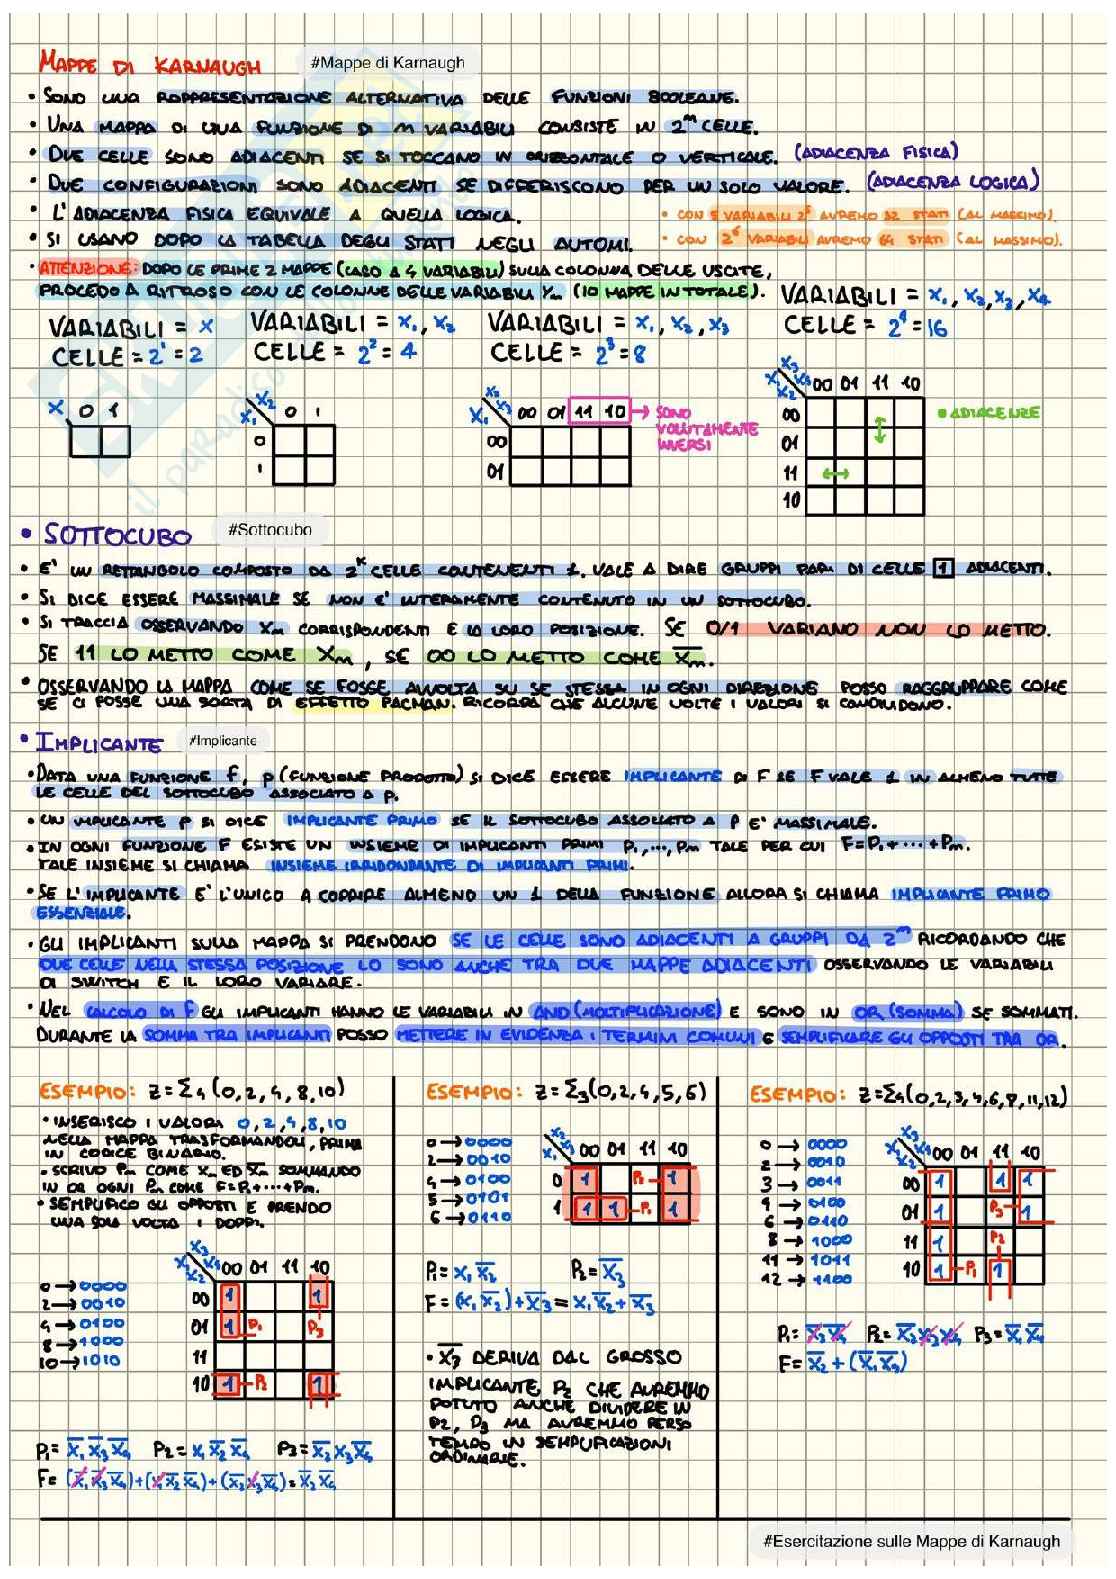 MAPPE DI KARNAUGH #Mappe di Karnaugh
• SONO UNA RAPPRESENTAZIONE ALTERNATIVA DELLE FUNZIONI BOOLEANE.
• UNA MAPPA DI UNA FUNZIONE DI M VARIABILI CONSISTE IN 2^m CELLE.
• DUE CELLE SONO ADIACENTI SE SI TOCCANO IN ORIZZONTALE O VERTICALE. (ADIACENZA FISICA)
• DUE CONFIGURAZIONI SONO ADIACENTI SE DIFFERISCONO PER UN SOLO VALORE. (ADIACENZA LOGICA)
• L'ADIACENZA FISICA EQUIVALE A QUELLA LOGICA.
• CON 5 VARIABILI 2^5 AVREMO 32 STATI (AL MASSIMO).
• SI USANO DOPO LA TABELLA DEGLI STATI NEGLI AUTOMI.
• CON 2^6 VARIABILI AVREMO 64 STATI (AL MASSIMO).
• ATTENZIONE: DOPO LE PRIME 2 MAPPE (CASO A 4 VARIABILI) SULLA COLONNA DELLE USCITE,
PROCEDO A RITROSO CON LE COLONNE DELLE VARIABILI Ym (10 MAPPE IN TOTALE).
VARIABILI = X
CELLE = 2^1 = 2
VARIABILI = X1, X2
CELLE = 2^2 = 4
VARIABILI = X1, X2, X3
CELLE = 2^3 = 8
VARIABILI = X1, X2, X3, X4
CELLE = 2^4 = 16
X 0 1
X1 X2 0 1
0
1
X1 X2 X3 00 01 11 10 → SONO
VOLUTAMENTE
INVERSI
00
01
X1 X2 X3 X4 00 01 11 10
00
01
11
10
• ADIACENZE
• SOTTOCUBO #Sottocubo
• E' UN RETTANGOLO COMPOSTO DA 2^K CELLE CONTENENTI 1. VALE A DIRE GRUPPI PARI DI CELLE 1 ADIACENTI.
• SI DICE ESSERE MASSIMALE SE NON E' INTERAMENTE CONTENUTO IN UN SOTTOCUBO.
• SI TRACCIA OSSERVANDO Xm CORRISPONDENTI E LA LORO POSIZIONE. SE 0/1 VARIANO NON LO METTO.
SE 11 LO METTO COME Xm, SE 00 LO METTO COME X̅m.
• OSSERVANDO LA MAPPA COME SE FOSSE AVVOLTA SU SE STESSA IN OGNI DIREZIONE POSSO RAGGRUPPARE COME
SE CI FOSSE UNA SORTA DI EFFETTO PACMAN. RICORDA CHE ALCUNE VOLTE I VALORI SI CONDIVIDONO.
• IMPLICANTE #Implicante
• DATA UNA FUNZIONE F, P (FUNZIONE PRODOTTO) SI DICE ESSERE IMPLICANTE DI F SE F VALE 1 IN ALMENO TUTTE
LE CELLE DEL SOTTOCUBO ASSOCIATO A P.
• UN IMPLICANTE P SI DICE IMPLICANTE PRIMO SE IL SOTTOCUBO ASSOCIATO A P E' MASSIMALE.
• IN OGNI FUNZIONE F ESISTE UN INSIEME DI IMPLICANTI PRIMI P1,...,Pm TALE PER CUI F=P1+...+Pm.
TALE INSIEME SI CHIAMA INSIEME IRRIDONDANTE DI IMPLICANTI PRIMI.
• SE L'IMPLICANTE E' L'UNICO A COPRIRE ALMENO UN 1 DELLA FUNZIONE ALLORA SI CHIAMA IMPLICANTE PRIMO
ESSENZIALE.
• GLI IMPLICANTI SULLA MAPPA SI PRENDONO SE LE CELLE SONO ADIACENTI A GRUPPI DA 2^m RICORDANDO CHE
DUE CELLE NELLA STESSA POSIZIONE LO SONO ANCHE TRA DUE MAPPE ADIACENTI OSSERVANDO LE VARIABILI
DI SWITCH E IL LORO VARIARE.
• NEL CALCOLO DI F GLI IMPLICANTI HANNO LE VARIABILI IN AND (MOLTIPLICAZIONE) E SONO IN OR (SOMMA) SE SOMMATI.
DURANTE LA SOMMA TRA IMPLICANTI POSSO METTERE IN EVIDENZA I TERMINI COMUNI E SEMPLIFICARE GLI OPPOSTI TRA OR.
ESEMPIO: Z=Σ4(0,2,4,8,10)
• INSERISCO I VALORI 0,2,4,8,10
NELLA MAPPA TRASFORMANDOLI, PRIMA
IN CODICE BINARIO.
• SCRIVO Pm COME Xm ED X̅m SOMMANDO
IN OR OGNI Pm COME F=P1+...+Pm.
• SEMPLIFICO GLI OPPOSTI E PRENDO
UNA SOLA VOLTA I DOPPI.
0 → 0000
2 → 0010
4 → 0100
8 → 1000
10 → 1010
X1 X2 X3 X4 00 01 11 10
00 1 1
01 1 P1 P3
11
10 1 P2 1
P1= X̅1 X̅3 X̅4 P2= X1 X̅2 X̅4 P3= X̅2 X3 X̅4
F= (X̅1 X̅3 X̅4)+(X1 X̅2 X̅4)+(X̅2 X3 X̅4)= X̅2 X̅4
ESEMPIO: Z=Σ3(0,2,4,5,6)
0 → 0000
2 → 0010
4 → 0100
5 → 0101
6 → 0110
X1 X2 X3 00 01 11 10
0 1 P2 1
1 1 1 P1 1
P1= X1 X̅2 P2= X̅3
F= (X1 X̅2)+X̅3= X1 X̅2+X̅3
• X̅3 DERIVA DAL GROSSO
IMPLICANTE P2 CHE AVREMMO
POTUTO ANCHE DIVIDERE IN
P2, P3 MA AVREMMO PERSO
TEMPO IN SEMPLIFICAZIONI
ORDINARIE.
ESEMPIO: Z=Σ4(0,2,3,4,6,8,11,12)
0 → 0000
2 → 0010
3 → 0011
4 → 0100
6 → 0110
8 → 1000
11 → 1011
12 → 1100
X1 X2 X3 X4 00 01 11 10
00 1 1 1
01 1 P3 1
11 1 P2
10 1 P1 1
P1= X̅3 X̅4 P2= X̅2 X3 X4 P3= X̅1 X̅4
F= X̅2+(X̅1 X̅3)
#Esercitazione sulle Mappe di Karnaugh